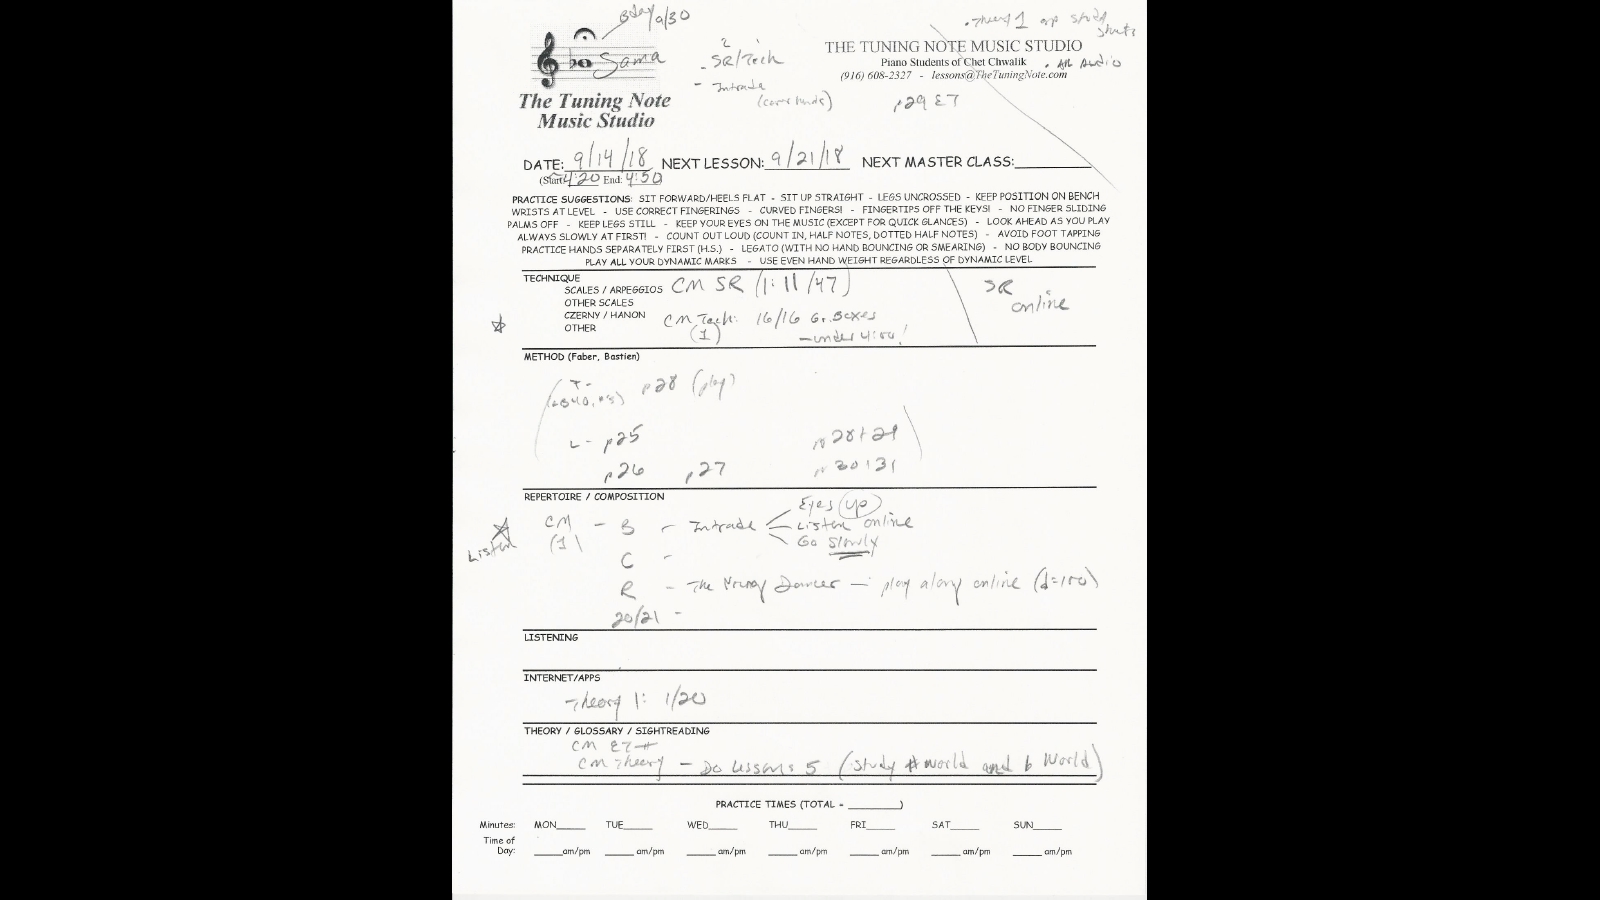 Bday 9/30
Sama
The Tuning Note
Music Studio
2 1
- SR/Tech
- Intrade
- Theory 1 app
THE TUNING NOTE MUSIC STUDIO
Piano Students of Chet Chwalik
(916) 608-2327 - lessons@TheTuningNote.com
Audio
p29 ET
DATE: 9/14/18 NEXT LESSON: 9/21/18 NEXT MASTER CLASS:
(Start 4:20 End: 4:50
PRACTICE SUGGESTIONS: SIT FORWARD/HEELS FLAT - SIT UP STRAIGHT - LEGS UNCROSSED - KEEP POSITION ON BENCH
WRISTS AT LEVEL - USE CORRECT FINGERINGS - CURVED FINGERS! - FINGERTIPS OFF THE KEYS! - NO FINGER SLIDING
PALMS OFF - KEEP LEGS STILL - KEEP YOUR EYES ON THE MUSIC (EXCEPT FOR QUICK GLANCES) - LOOK AHEAD AS YOU PLAY
ALWAYS SLOWLY AT FIRST! - COUNT OUT LOUD (COUNT IN, HALF NOTES, DOTTED HALF NOTES) - AVOID FOOT TAPPING
PRACTICE HANDS SEPARATELY FIRST (H.S.) - LEGATO (WITH NO HAND BOUNCING OR SMEARING) - NO BODY BOUNCING
PLAY ALL YOUR DYNAMIC MARKS - USE EVEN HAND WEIGHT REGARDLESS OF DYNAMIC LEVEL
TECHNIQUE
SCALES / ARPEGGIOS CM SR (1: 11/47)
OTHER SCALES
CZERNY / HANON CM Tech: 16/16 Gr. Boxes
OTHER (1) - under 4:00!
SR
online
METHOD (Faber, Bastien)
T- p28 (play)
L- p25 p28+29
p26 p27 p30+31
REPERTOIRE / COMPOSITION
Listen
CM (1) - B - Intrade
Eyes up
Listen online
Go slowly
C -
R - The Young Dancer - play along online
20/21 -
LISTENING
INTERNET/APPS
Theory 1: 1/20
THEORY / GLOSSARY / SIGHTREADING
CM ET#
CM Theory - Do Lessons 5 (study # World and b World)
PRACTICE TIMES (TOTAL = ________)
Minutes: MON_____ TUE_____ WED_____ THU_____ FRI_____ SAT_____ SUN_____
Time of
Day: _____am/pm _____ am/pm _____ am/pm _____ am/pm _____ am/pm _____ am/pm _____ am/pm